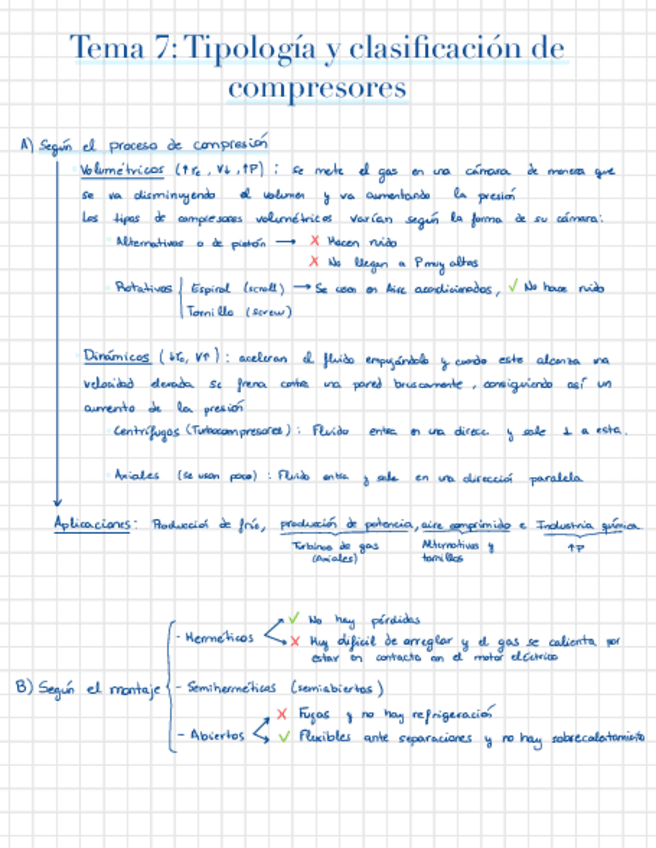 Tema 7: Tipología y clasificación de
compresores
A) Según el proceso de compresión
Volumétricos (↑rc, V↓, ↑P) : se mete el gas en una cámara de manera que
se va disminuyendo el volumen y va aumentando la presión
Los tipos de compresores volumétricos varían según la forma de su cámara:
Alternativos o de pistón → X Hacen ruido
X No llegan a P muy altas
Rotativos | Espiral (scroll) → Se usan en Aire acondicionados, ✓ No hace ruido
Tornillo (screw)
Dinámicos (↓rc, V↑) : aceleran el fluido empujándolo y cuando este alcanza una
velocidad elevada se frena contra una pared bruscamente, consiguiendo así un
aumento de la presión
Centrífugos (Turbocompresores) : Fluido entra en una direcc. y sale ⊥ a esta.
Axiales (se usan poco) : Fluido entra y sale en una dirección paralela
Aplicaciones: Producción de frío, producción de potencia, aire comprimido e Industria química
Turbinas de gas Alternativos y ↑P
(axiales) tornillos
✓ No hay pérdidas
- Herméticos
X Muy difícil de arreglar y el gas se calienta por
estar en contacto con el motor eléctrico
B) Según el montaje - Semiherméticos (semiabiertos)
X Fugas y no hay refrigeración
- Abiertos ✓ Flexibles ante separaciones y no hay sobrecalentamiento